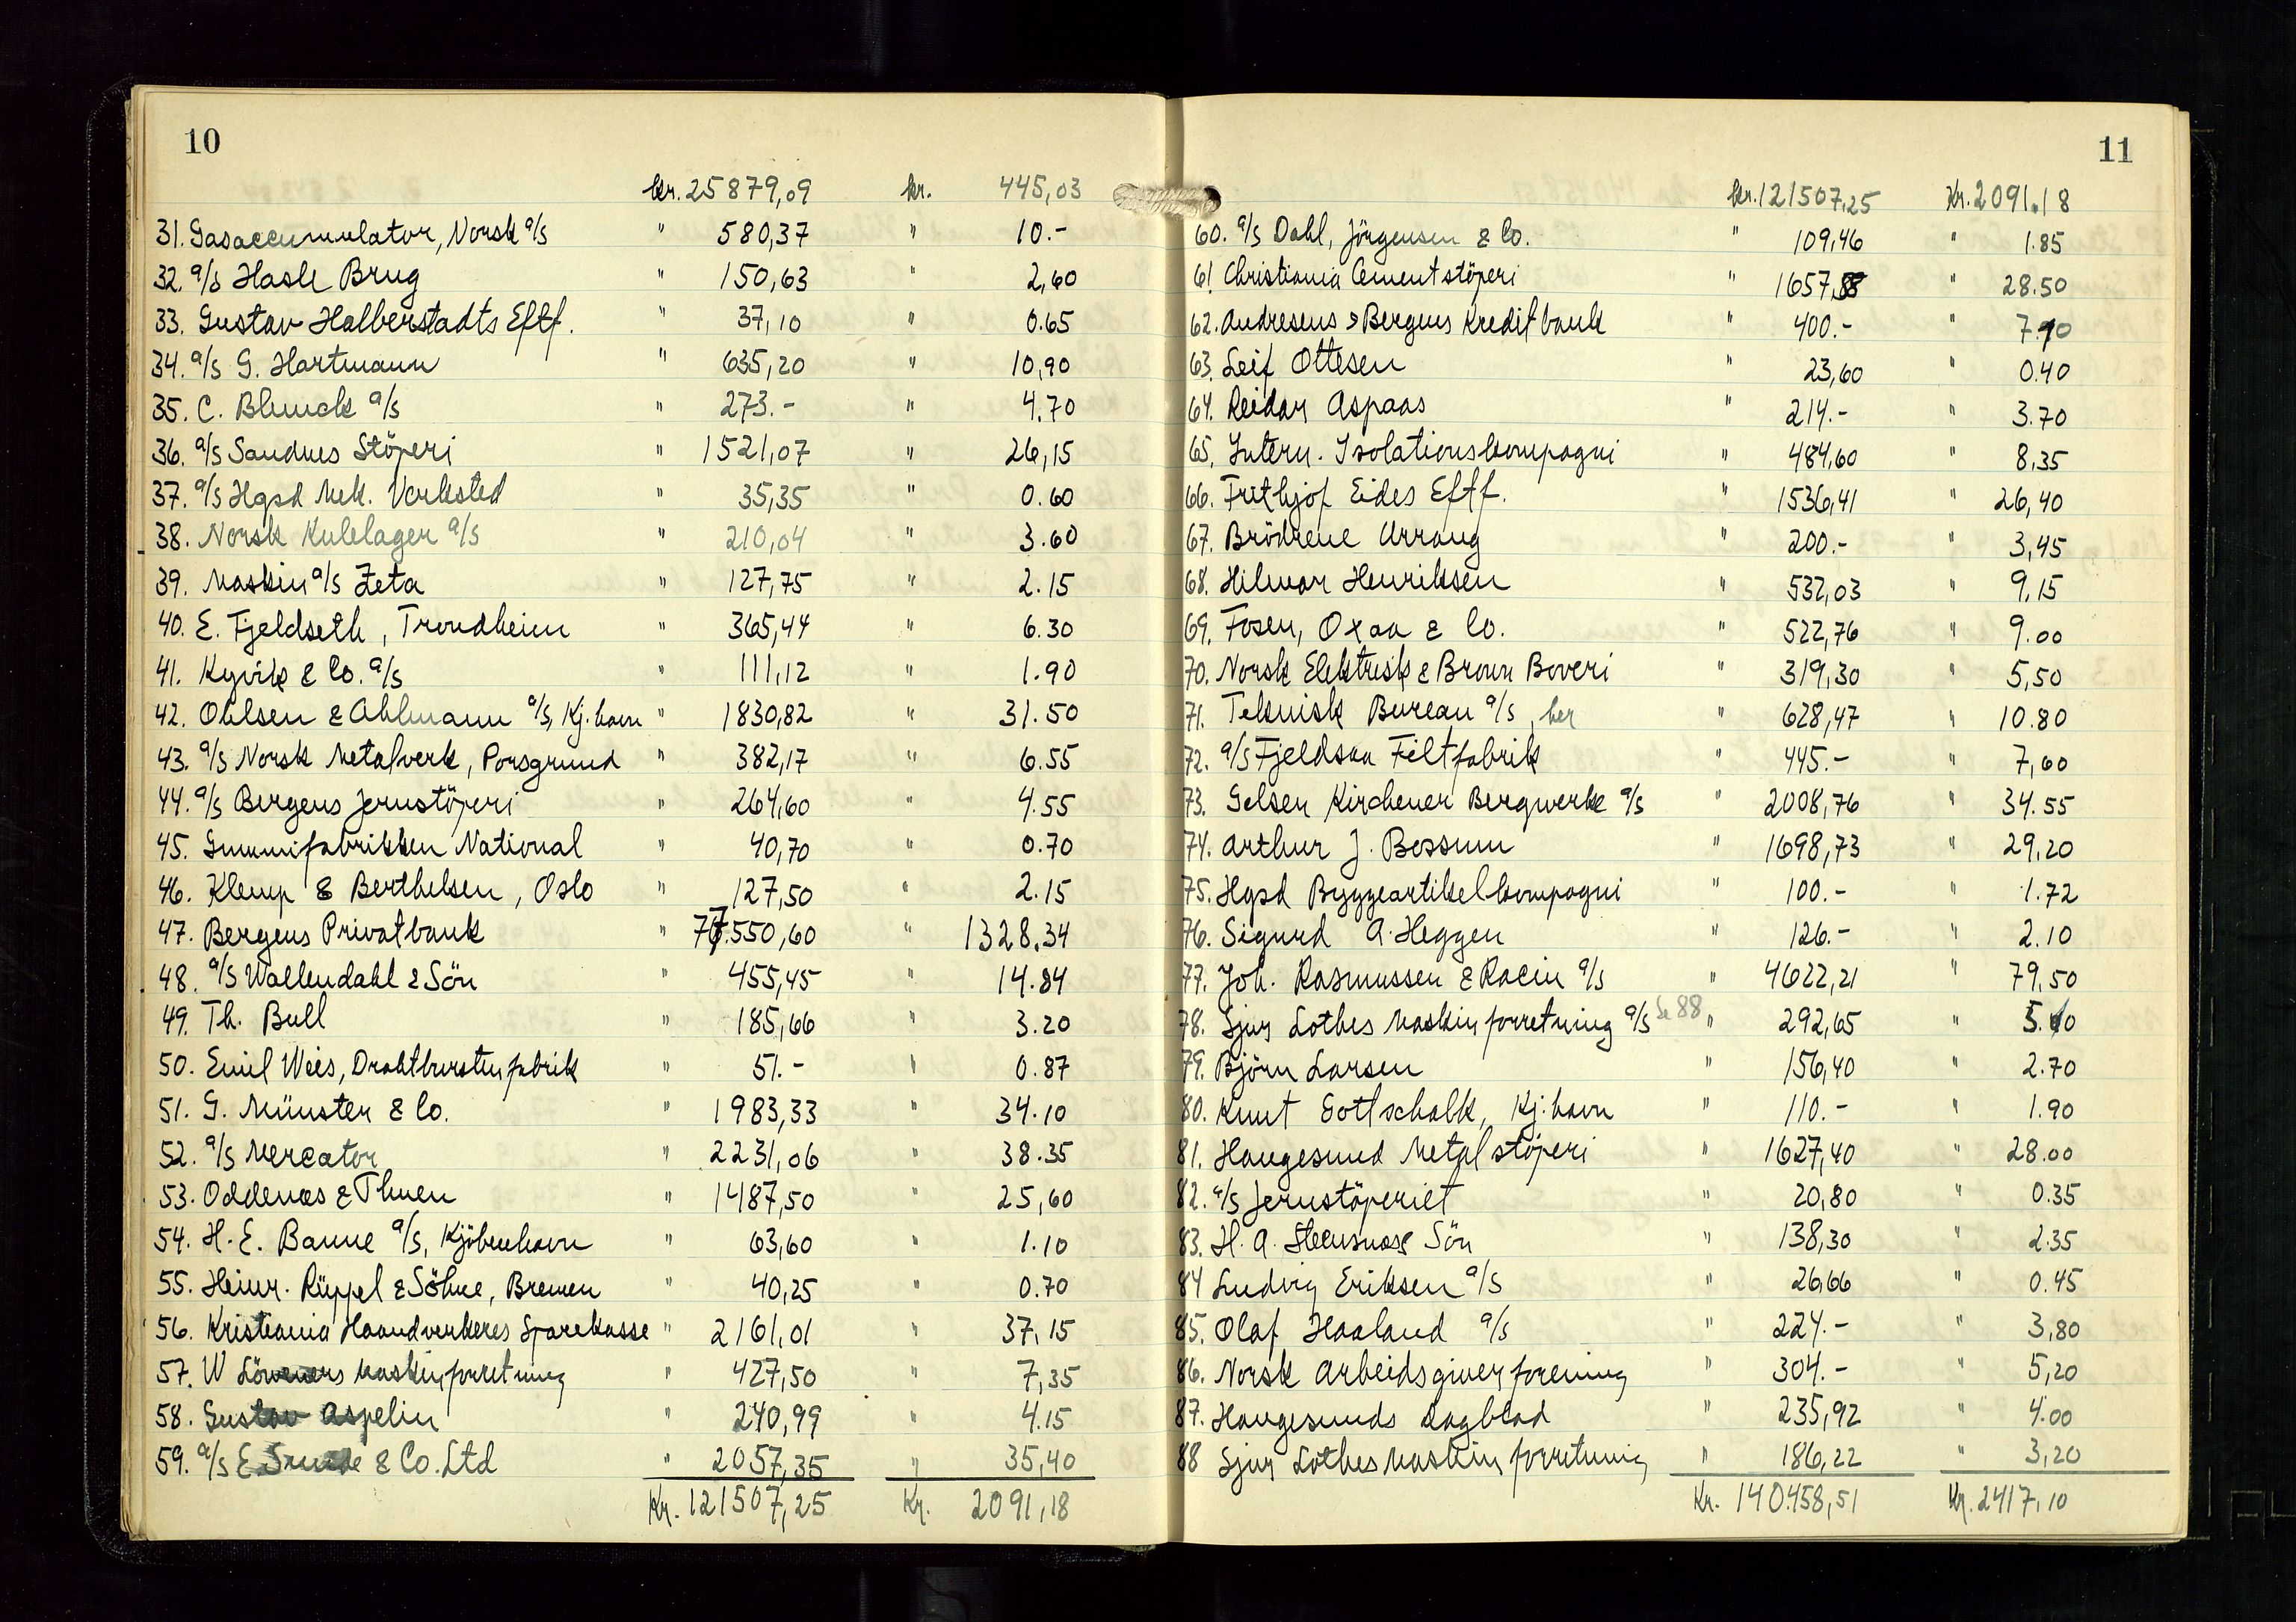 10
kr. 25879,09 kr. 445,03
31. Gasaccumulator, Norsk a/s " 580,37 " 10.-
32. a/s Hasle Brug " 150,63 " 2,60
33. Gustav Halberstadts Eftf. " 37,10 " 0.65
34. a/s G. Hartmann " 635,20 " 10,90
35. C. Blunck a/s " 273.- " 4.70
36. a/s Sandnes Stöperi " 1521,07 " 26,15
37. a/s Hgsd Mek. Verksted " 35,35 " 0.60
38. Norsk Kulelager a/s " 210,04 " 3.60
39. Maskin a/s Zeta " 127,75 " 2.15
40. E. Fjeldseth, Trondheim " 365,44 " 6.30
41. Kyvik & Co. a/s " 111,12 " 1.90
42. Ohlsen & Ahlmann a/s, Kj.havn " 1830,82 " 31.50
43. a/s Norsk Metalverk, Porsgrund " 382,17 " 6.55
44. a/s Bergens Jernstöperi " 264,60 " 4.55
45. Gummifabrikken National " 40,70 " 0.70
46. Klemp & Berthelsen, Oslo " 127,50 " 2.15
47. Bergens Privatbank " 77.550,60 " 1328.34
48. a/s Wallendahl & Sön " 455,45 " 14.84
49. Th. Bull " 185,66 " 3.20
50. Emil Weis, Drahtburstenfabrik " 51.- " 0.87
51. G. Münster & Co. " 1983,33 " 34.10
52. a/s Mercator " 2231,06 " 38.35
53. Oddenæs & Thuen " 1487,50 " 25,60
54. H. E. Banne a/s, Kjöbenhavn " 63,60 " 1.10
55. Heinr. Rüppel & Söhne, Bremen " 40,25 " 0.70
56. Kristiania Haandverkeres Sparekasse " 2161,01 " 37,15
57. W Löweners Maskinforretning " 427,50 " 7,35
58. Gustav Aspelin " 240,99 " 4.15
59. a/s E. Sunde & Co. Ltd " 2057,35 " 35,40
Kr. 121507,25 Kr. 2091,18
11
kr. 121507,25 Kr. 2091.18
60. a/s Dahl, Jörgensen & Co. " 109,46 " 1.85
61. Christiania Cementstöperi " 1657,88 " 28.50
62. Andresens & Bergens Kreditbank " 400.- " 7.10
63. Leif Ottesen " 23,60 " 0.40
64. Reidar Aspaas " 214.- " 3.70
65. Intern. Isolationskompagni " 484,60 " 8,35
66. Frithjof Eides Eftf. " 1536,41 " 26,40
67. Brödrene Arrang " 200.- " 3,45
68. Hilmar Henriksen " 532,03 " 9,15
69. Fosen, Oxaa & Co. " 522,76 " 9.00
70. Norsk Elektrisk & Brown Boveri " 319,30 " 5,50
71. Teknisk Bureau a/s, her " 628,47 " 10.80
72. a/s Fjeldsaa Filtfabrik " 445.- " 7,60
73. Gelsen Kirchener Bergwerke a/s " 2008,76 " 34.55
74. Arthur J. Bessum " 1698,73 " 29,20
75. Hgsd Byggeartikelkompagni " 100.- " 1.72
76. Sigurd A. Heggen " 126.- " 2.10
77. Joh. Rasmussen & Racin a/s " 4622,21 " 79,50
78. Sjur Lothes Maskinforretning a/s Se 88 " 292,65 " 5.00
79. Björn Larsen " 156,40 " 2.70
80. Knut Gottschalk, Kj.havn " 110.- " 1.90
81. Haugesund Metalstöperi " 1627,40 " 28.00
82. a/s Jernstöperiet " 20,80 " 0.35
83. H. A. Steensnæs Sön " 138,30 " 2.35
84 Ludvig Eriksen a/s " 26,66 " 0.45
85. Olaf Haaland a/s " 224.- " 3,80
86. Norsk Arbeidsgiverforening " 304.- " 5,20
87. Haugesunds Dagblad " 235,92 " 4.00
88 Sjur Lothes Maskinforretning " 186,22 " 3,20
Kr. 140.458,51 Kr. 2417,10